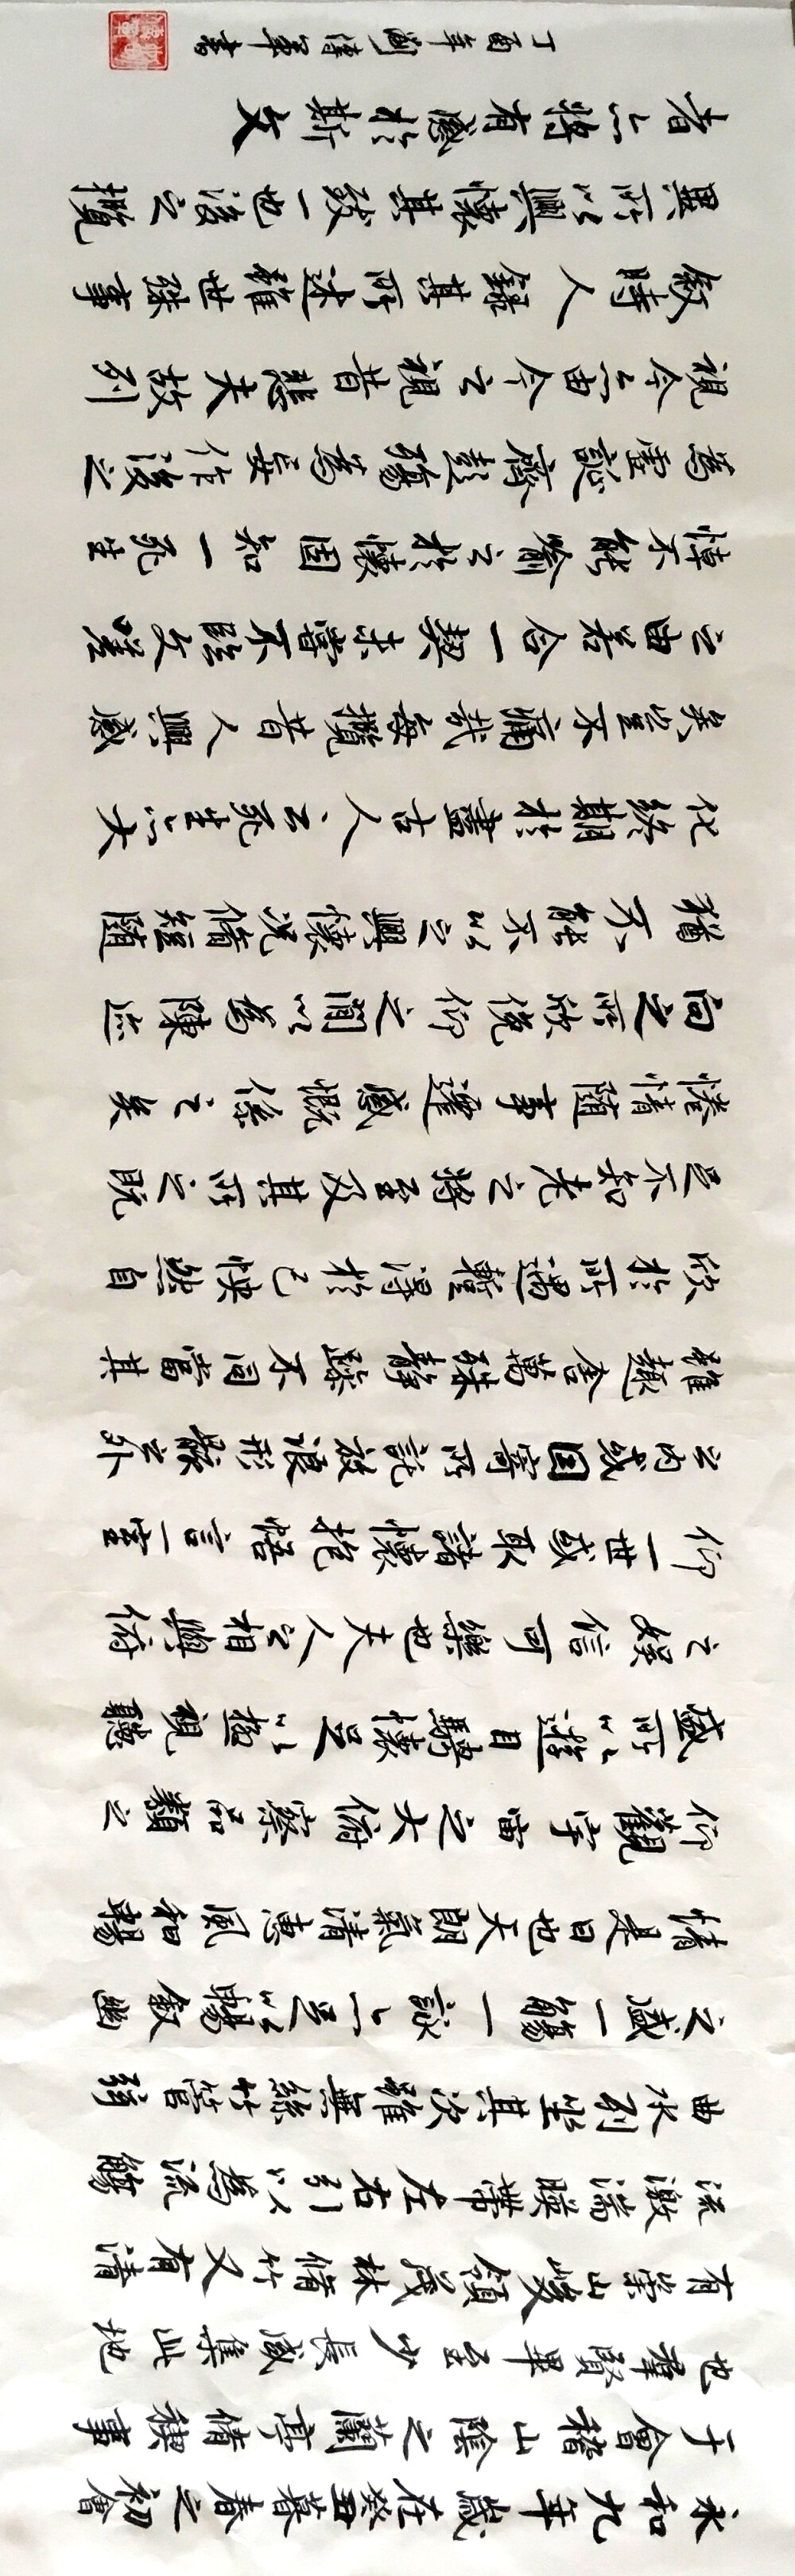 永和九年歲在癸丑暮春之初會
于會稽山陰之蘭亭脩禊事
也羣賢畢至少長咸集此地
有崇山峻領茂林脩竹又有清
流激湍暎帶左右引以為流觴
曲水列坐其次雖無絲竹管弦
之盛一觴一詠亦足以暢敘幽
情是日也天朗氣清惠風和暢
仰觀宇宙之大俯察品類之
盛所以遊目騁懷足以極視聽
之娛信可樂也夫人之相與俯
仰一世或取諸懷抱悟言一室
之內或因寄所託放浪形骸之外
雖趣舍萬殊靜躁不同當其
欣於所遇暫得於己快然自
足不知老之將至及其所之既
惓情隨事遷感慨係之矣
向之所欣俛仰之間以為陳迹
猶不能不以之興懷況脩短隨
化終期於盡古人云死生亦大
矣豈不痛哉每攬昔人興感
之由若合一契未嘗不臨文嗟
悼不能喻之於懷固知一死生
為虛誕齊彭殤為妄作後之
視今亦由今之視昔悲夫故列
敘時人錄其所述雖世殊事
異所以興懷其致一也後之攬
者亦將有感於斯文
丁酉年劉偉軍書